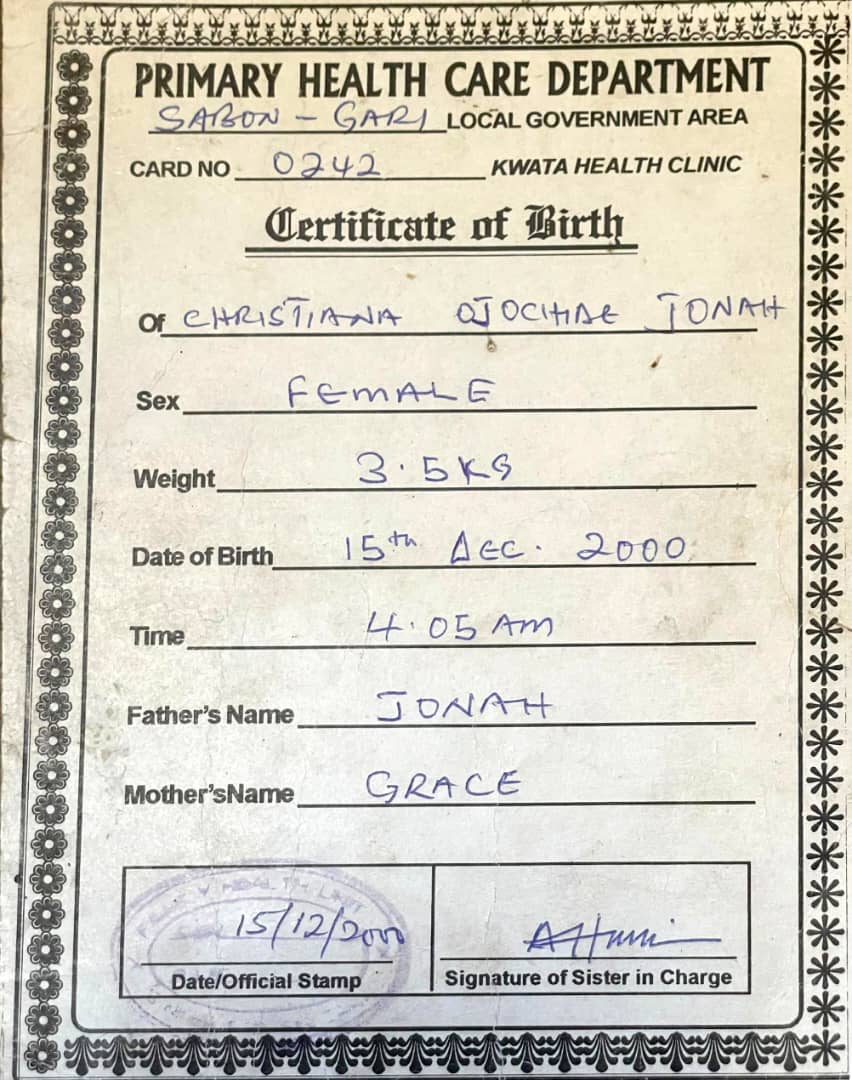 PRIMARY HEALTH CARE DEPARTMENT
SABON - GARI LOCAL GOVERNMENT AREA
CARD NO 0242 KWATA HEALTH CLINIC
Certificate of Birth
Of CHRISTIANA OJOCHIDE JONAH
Sex FEMALE
Weight 3.5KG
Date of Birth 15th DEC. 2000
Time 4.05 AM
Father's Name JONAH
Mother'sName GRACE
HEALTH
15/12/2000
Date/Official Stamp
Signature of Sister in Charge